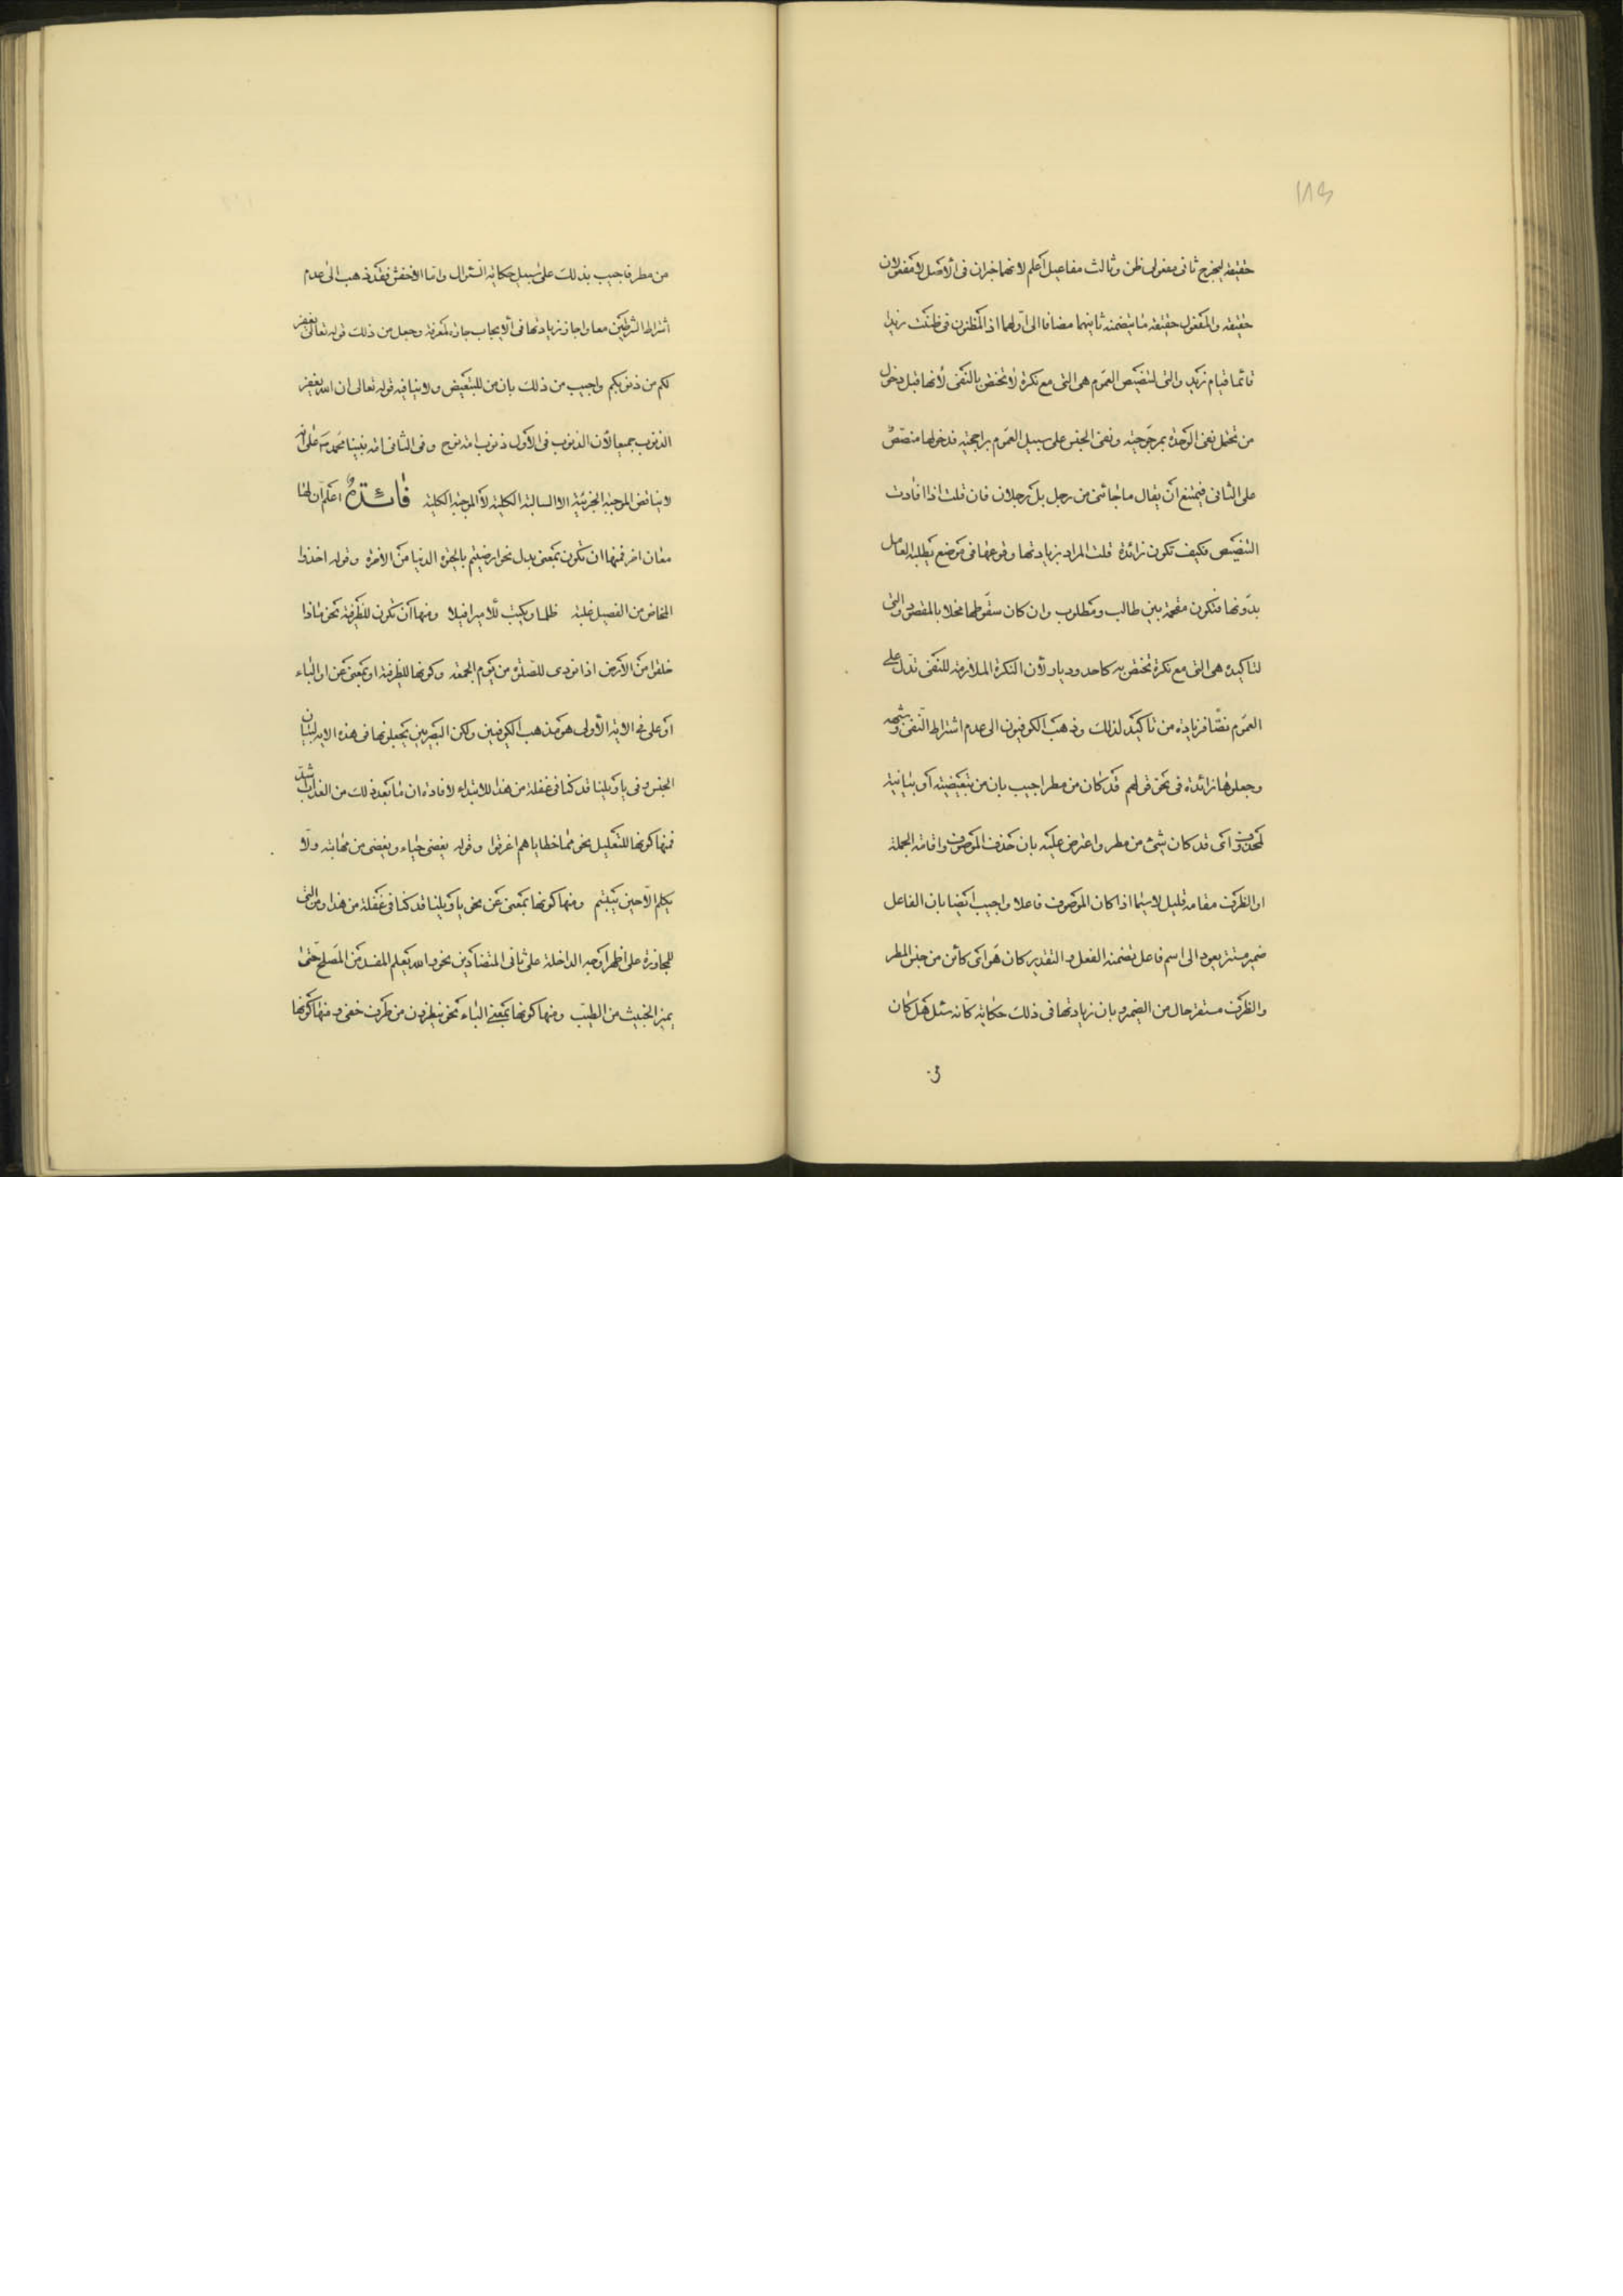 ١١٣
حقيقة ليخرج ثانى مفعولى ظن وثالث مفاعيل اعلم لانهما خبران فى الاصل لا مفعولان
حقيقة والمفعول حقيقة ما يتضمنه ثانيهما مضافا الى اولهما اذ المظنون فى ظننت زيدا
قائما قيام زيد والتى لتنصيص العموم هى التى مع نكرة لا تختص بالنفى لانها قبل دخول
من تحتمل نفى الوحدة بمرجوحية ونفى الجنس على سبيل العموم براجحية فدخولها منصص
على الثانى فيمتنع ان يقال ما جائنى من رجل بل رجلان فان قلت اذا افادت
التنصيص فكيف تكون زائدة قلت المراد بزيادتها وقوعها فى موضع يطلبه العامل
بدونها فتكون مقحمة بين طالب ومطلوب وان كان سقوطها مخلا بالمقصود والتى
لتاكيده هى التى مع نكرة تختص به كاحد وديار لأن النكرة الملازمة للنفى تدل على
العموم نصا فزيادة من تاكيد لذلك وذهب الكوفيون الى عدم اشتراط النفى وشبهه
وجعلوها زائدة فى نحو قولهم قد كان من مطر اجيب بان من تبعيضية او بيانية
لمحذوف اى قد كان شىء من مطر واعترض عليه بان حذف الموصوف واقامة الجملة
او الظرف مقامه قليل لا سيما اذا كان الموصوف فاعلا واجيب ايضا بان الفاعل
ضمير مستتر يعود الى اسم فاعل تضمنه الفعل والتقدير كان هو اى كائن من جنس المطر
والظرف مستقر حال من الضمير وبان زيادتها فى ذلك حكاية كانه سئل هل كان
من
من مطر فاجيب بذلك على سبيل حكاية السئوال واما الاخفش فقد ذهب الى عدم
اشتراط الشرطين معا واجاز زيادتها فى الايجاب جارة لمعرفة وجعل من ذلك قوله تعالى يغفر
لكم من ذنوبكم واجيب من ذلك بان من للتبعيض ولا ينافيه قوله تعالى ان الله يغفر
الذنوب جميعا لأن الذنوب فى الأول ذنوب امة نوح وفى الثانى امة نبينا محمد على انه
لا يناقض الموجبة الجزئية الا السالبة الكلية لا الموجبة الكلية فائدة اعلم ان لها
معان اخر فمنها ان تكون بمعنى بدل نحو ارضيتم بالحيوة الدنيا من الاخرة وقوله اخذوا
المخاض من الفصيل غلبة ظلما ويكتب للامير افيلا ومنها ان تكون للظرفية نحو ماذا
خلقوا من الأرض اذا نودى للصلوة من يوم الجمعة وكونها للظرفية او بمعنى عن او الباء
او على فى الاية الأولى هو مذهب الكوفيين ولكن البصريين يجعلونها فى هذه الاية لبيان
الجنس وفى يا ويلنا قد كنا فى غفلة من هذا للابتداء لافادة ان ما بعد ذلك من العذاب اشد
فمنها كونها للتعليل نحو مما خطاياهم اغرقوا وقوله يغضى حياء ويغضى من مهابته ولا
يكلم الا حين يبتسم ومنها كونها بمعنى عن نحو يا ويلنا قد كنا فى غفلة من هذا ومن التى
للمجاوزة على اظهر اوجه الداخلة على ثانى المتضادين نحو والله يعلم المفسد من المصلح حتى
يميز الخبيث من الطيب ومنها كونها بمعنى الباء نحو ينظرون من طرف خفى ومنها كونها